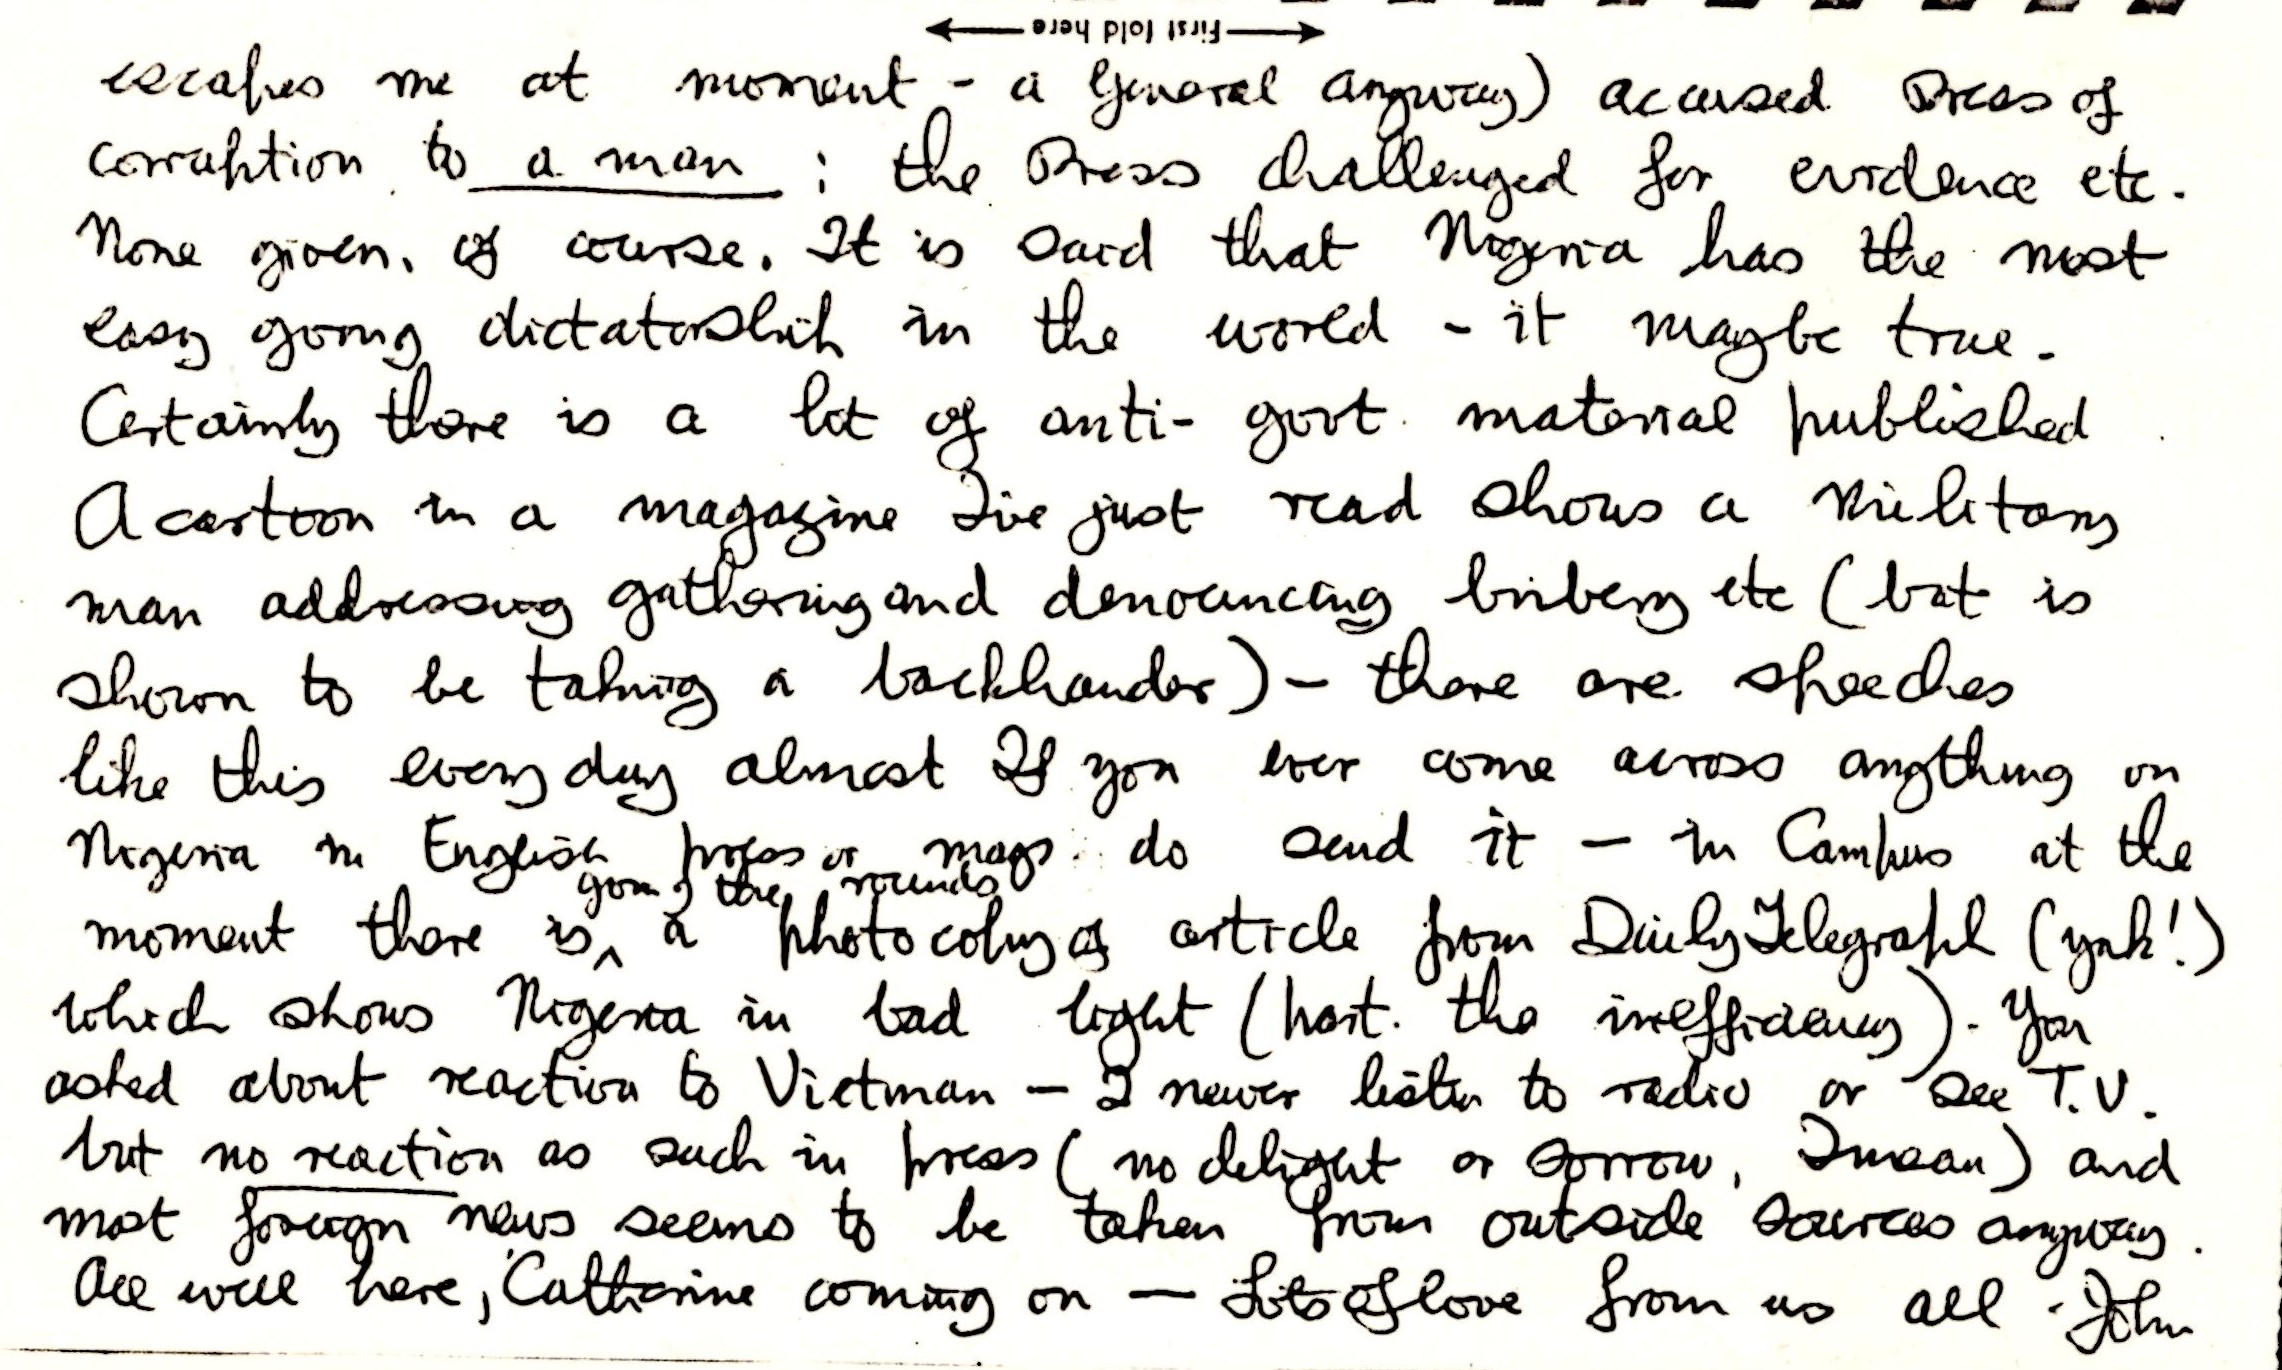 First fold here
escapes me at moment - a General anyway) accused Press of
corruption to a man : the Press challenged for evidence etc.
None given, of course. It is said that Nigeria has the most
easy going dictatorship in the world - it maybe true.
Certainly there is a lot of anti- govt. material published
A cartoon in a magazine I've just read shows a military
man addressing gathering and denouncing bribery etc (but is
shown to be taking a backhander) - there are speeches
like this every day almost If you ever come across anything on
Nigeria in English press or mags do send it - in Campus at the
going the rounds
moment there is ^ a photocopy of article from Daily Telegraph (yuk!)
which shows Nigeria in bad light (part. the inefficiency). You
asked about reaction to Vietman - I never listen to radio or see T.V.
but no reaction as such in press (no delight or sorrow, I mean) and
most foreign news seems to be taken from outside sources anyway.
All well here, Catherine coming on - Lots of love from us all. John